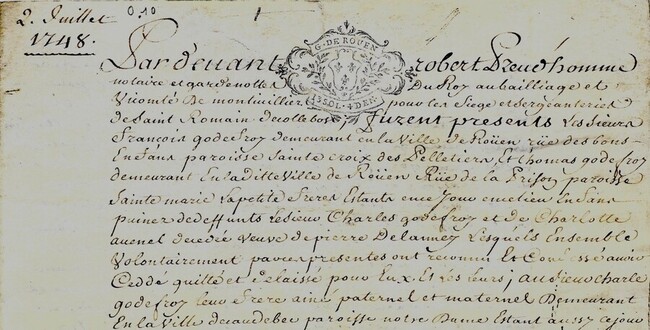 2. Juillet 0,10
1748.
Pardeuant robert Preudhomme
G. DE ROUEN
1. SOL. 4 DEN.
notaire et gardenottes Du Roy au bailliage et
Vicomté De montiuillier pour les Siege et Sergenteries
de Saint Romain de collebosc, fuzent presents les sieurs
François godefroy demeurant en la Ville de Roüen rüe des bons-
Enfans paroisse Sainte croix des Pelletiers, Et thomas godefroy
demeurant En la ditte Ville de Roüen Rüe de la Prison paroisse
Sainte marie La petite freres Estants en ce Jour en ce lieu Enfans
puinez de deffunts le sieur Charles godefroy et de Charlotte
auenel decedée veuve de pierre Delanney Lesquels Ensemble
Volontairement par ces presentes ont reconnu Et auoir
Ceddé quitté et delaissé pour Eux Et les leurs; au sieur Charle
godefroy leur frere ainé paternel et maternel Demeurant
En la Ville de caudebec paroisse notre Dame Estant aussy ce jour